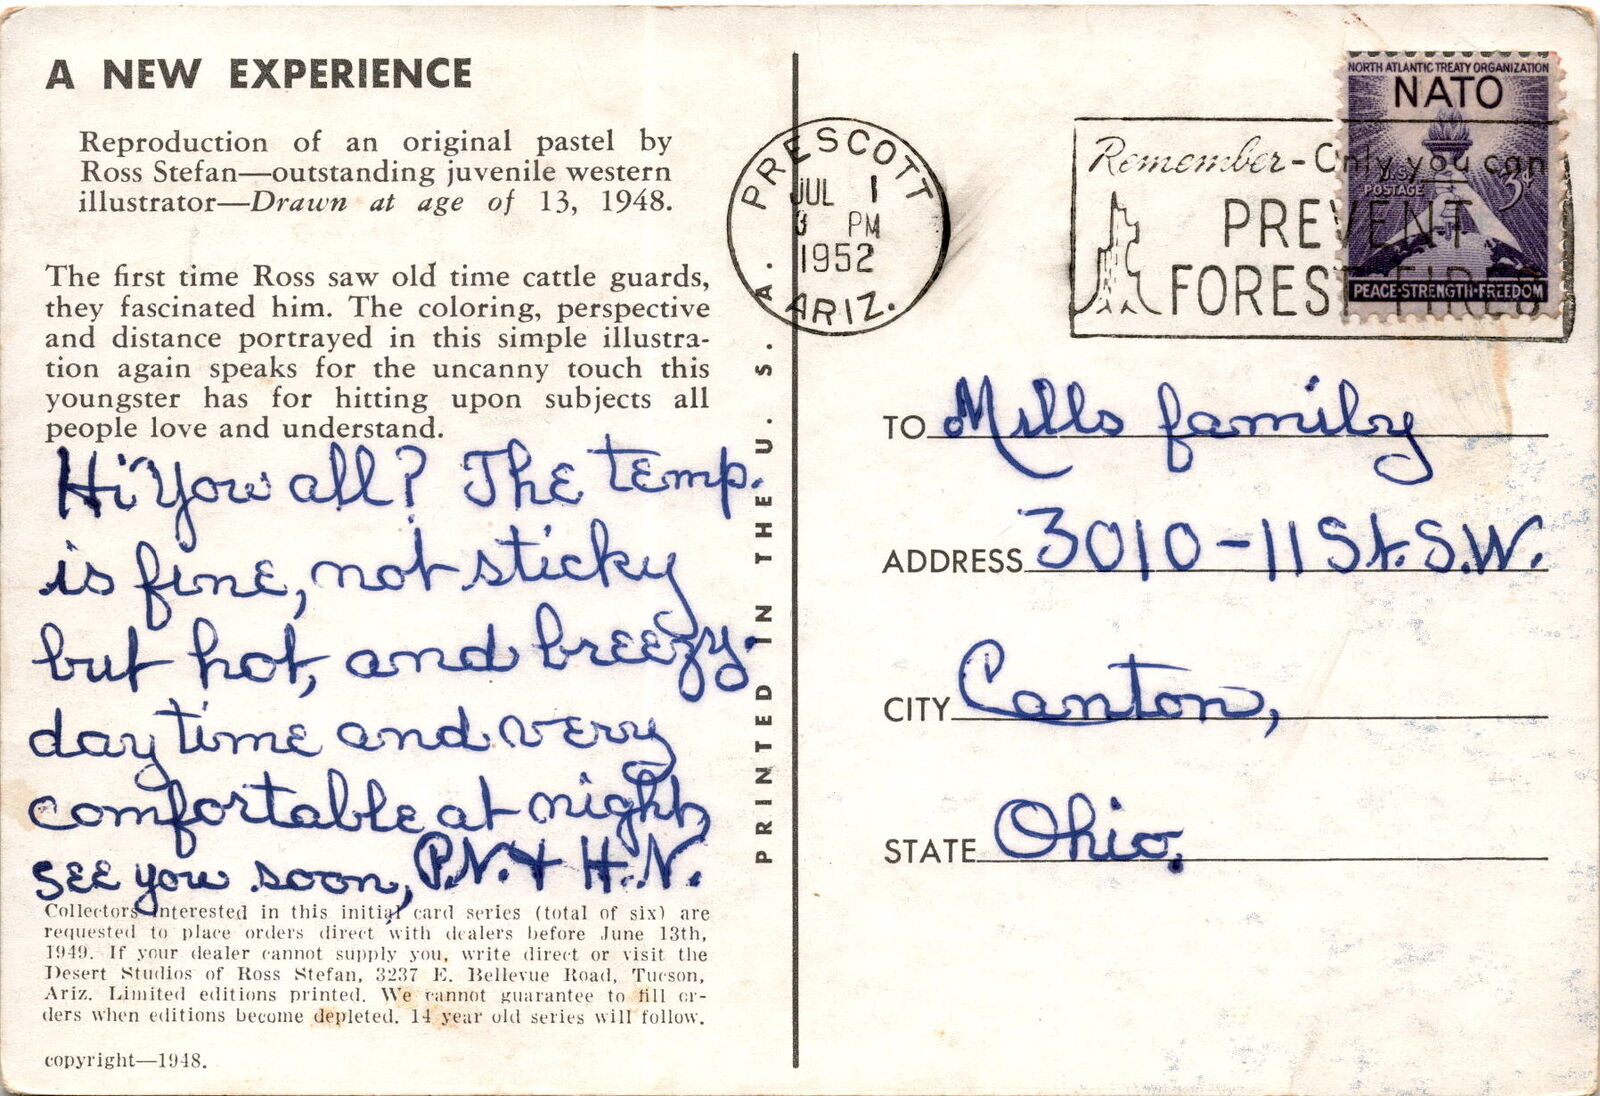 A NEW EXPERIENCE
Reproduction of an original pastel by
Ross Stefan—outstanding juvenile western
illustrator—Drawn at age of 13, 1948.
The first time Ross saw old time cattle guards,
they fascinated him. The coloring, perspective
and distance portrayed in this simple illustra-
tion again speaks for the uncanny touch this
youngster has for hitting upon subjects all
people love and understand.
Hi You all? The temp.
is fine, not sticky
but hot, and breezy.
day time and very
comfortable at night,
see you soon, P.N. + H.N.
Collectors interested in this initial card series (total of six) are
requested to place orders direct with dealers before June 13th,
1949. If your dealer cannot supply you, write direct or visit the
Desert Studios of Ross Stefan, 3237 E. Bellevue Road, Tucson,
Ariz. Limited editions printed. We cannot guarantee to fill or-
ders when editions become depleted. 14 year old series will follow.
copyright—1948.
PRINTED IN THE U. S. A.
PRESCOTT
JUL 1
3 PM
1952
ARIZ.
Remember-Only you can
PREVENT
FOREST FIRES
NORTH ATLANTIC TREATY ORGANIZATION
NATO
U.S.
POSTAGE
3¢
PEACE·STRENGTH·FREEDOM
TO Mills family
ADDRESS 3010-11 St. S.W.
CITY Canton,
STATE Ohio.